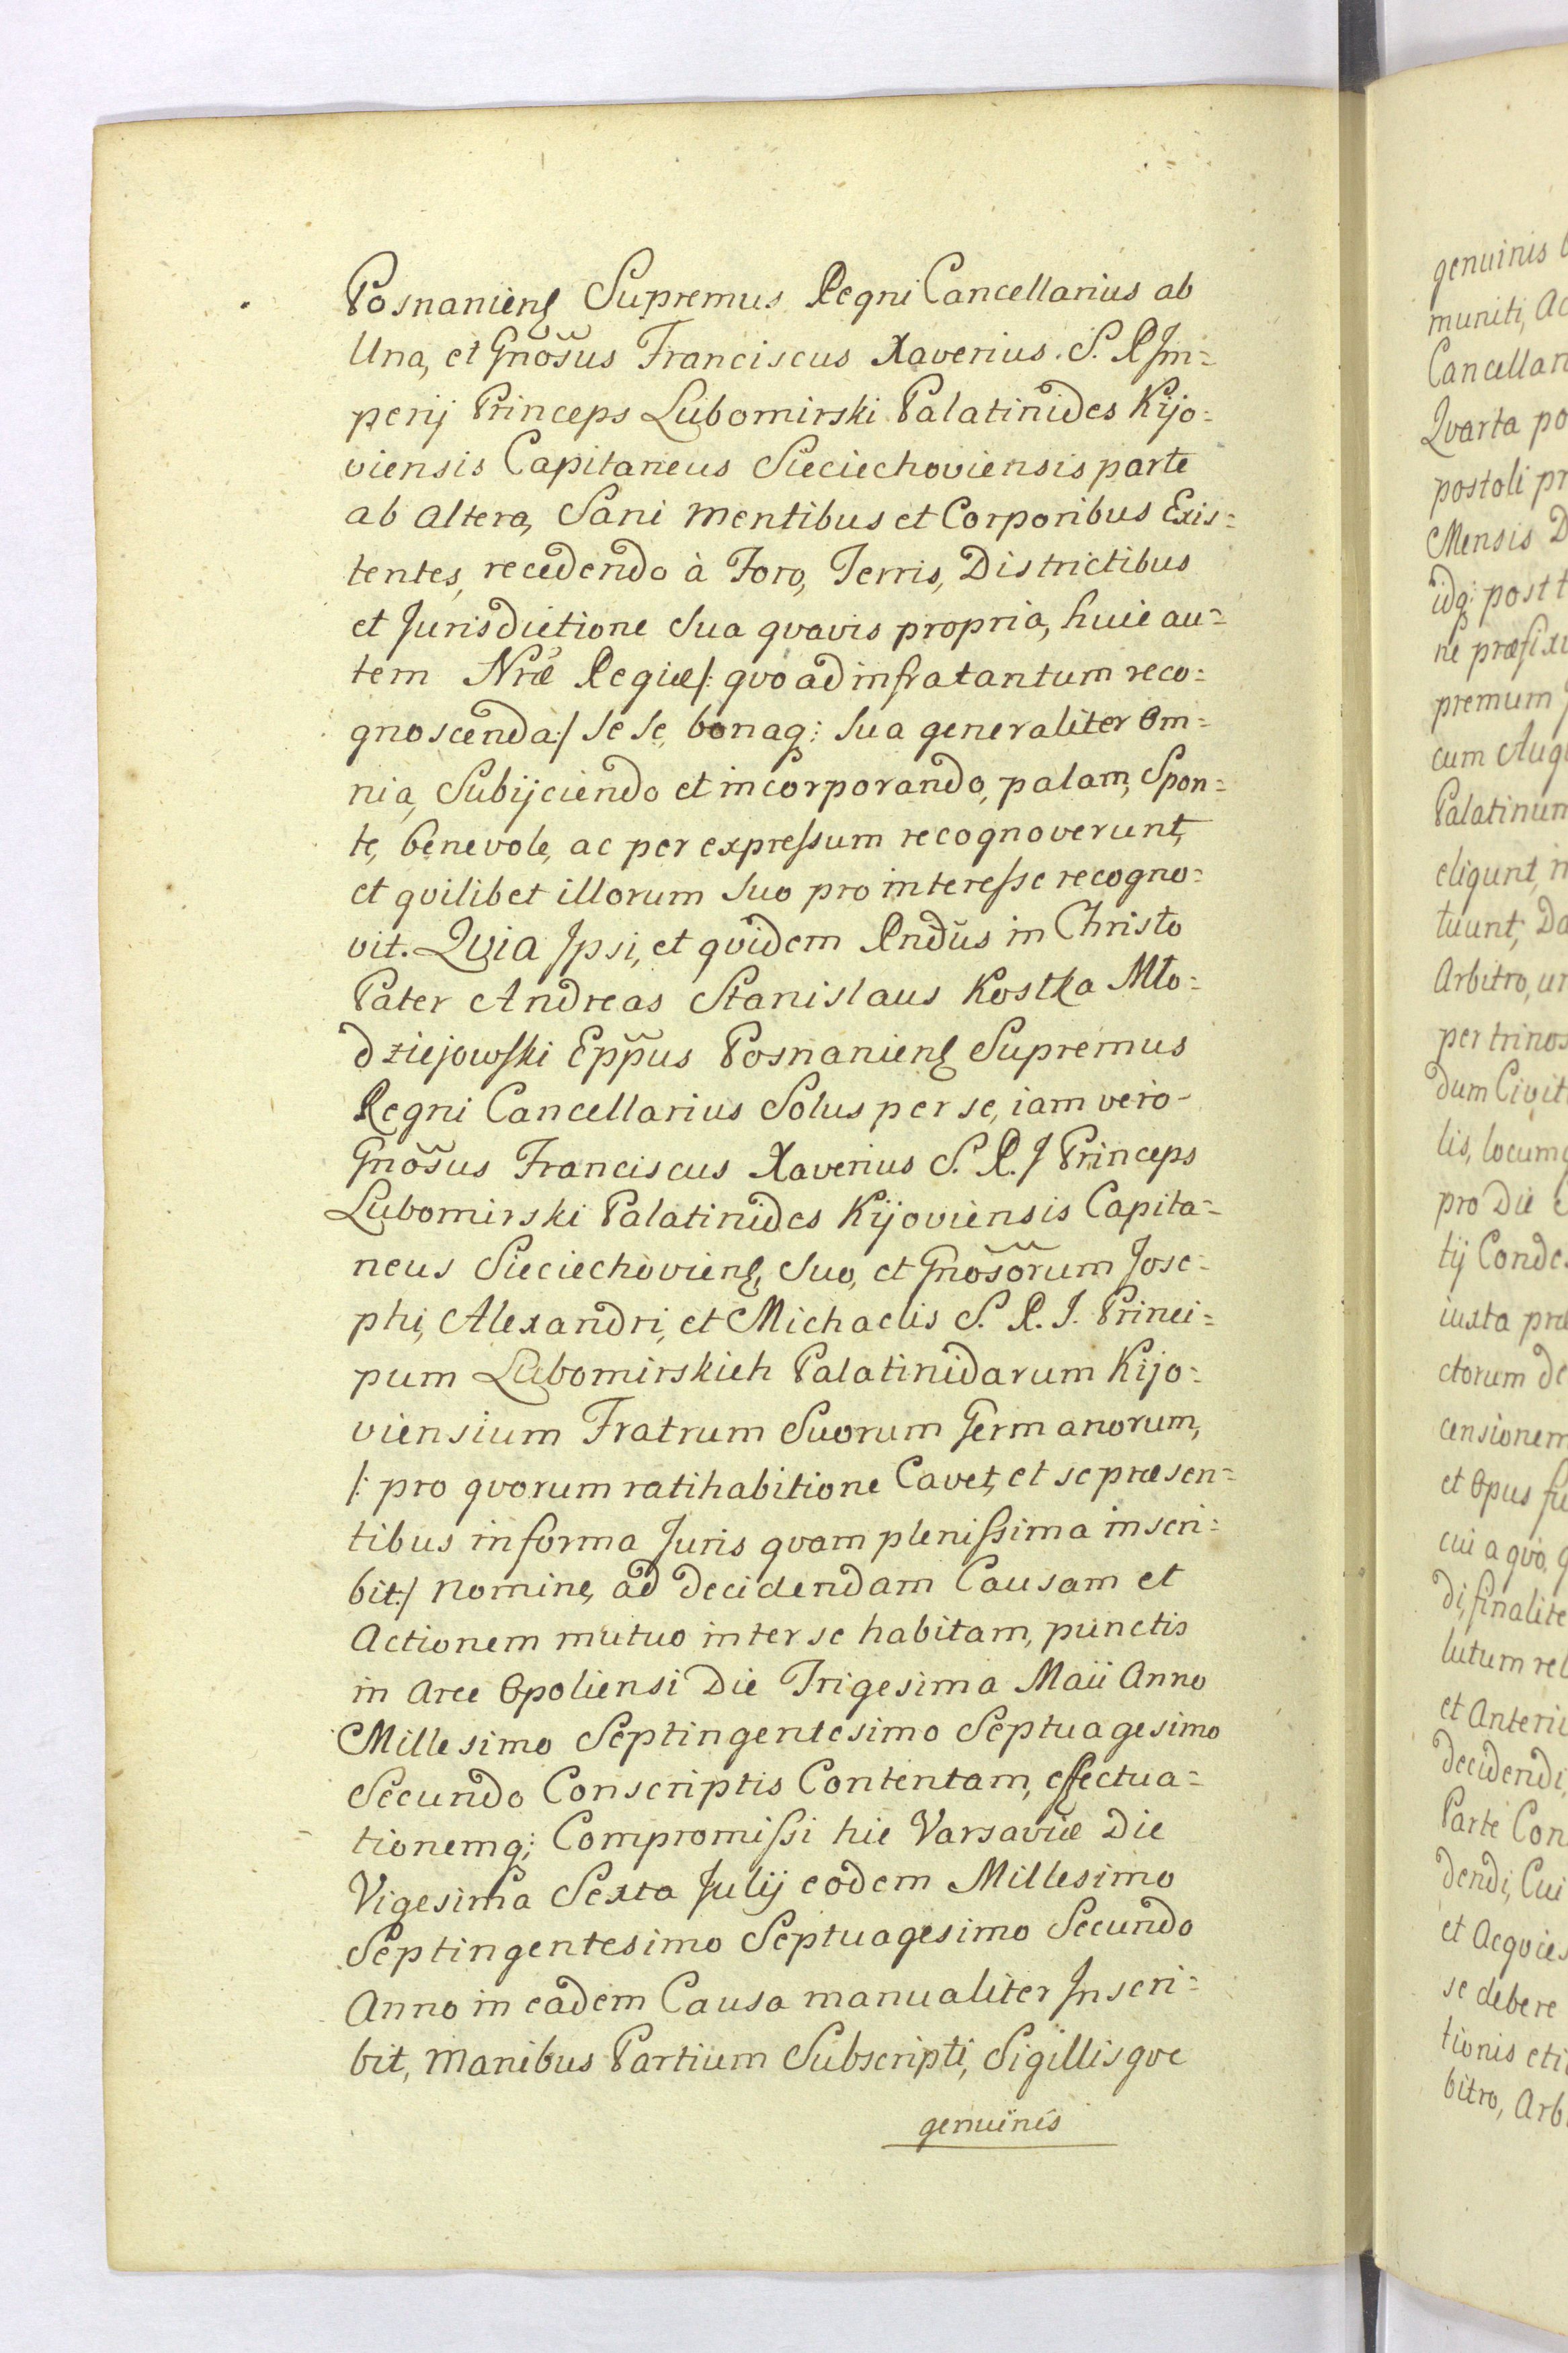 Posnanienȩ Supremus Regni Cancellarius ab
Una, et Gnosus Franciscus Xaverius S. R Im=
perij Princeps Lubomirski Palatinides Kijo=
viensis Capitaneus Sieciechoviensis parte
ab altera, Sani mentibus et Corporibus Exis=
tentes, recedendo à Foro, Terris, Districtibus
et Jurisdictione Sua qvavis propria, huic au=
tem Nræ Regiæ /: qvo ad infra tantum reco=
gnoscenda :/ se se, bonaq: sua generaliter om=
nia, Subijciendo et incorporando, palam, Spon=
te, benevole, ac per expressum recognoverunt,
et qvilibet illorum suo pro interesse recogno=
vit. Qvia Ipsi, et qvidem Rndus in Christo
Pater Andreas Stanislaus Kostka Mło=
dziejowski Eppus Posnanienȩ Supremus
Regni Cancellarius Solus per se, iam vero
Gnosus Franciscus Xaverius S. R. I Princeps
Lubomirski Palatinides Kijoviensis Capita=
neus Sieciechovienȩ, Suo, et Gnosorum Jose=
phi, Alexandri, et Michaelis S. R. I. Princi=
pum Lubomirskich Palatinidarum Kijo=
viensium Fratrum Suorum Germanorum,
/: pro qvorum ratihabitione Cavet, et se præsen=
tibus in forma Juris qvam plenissima inscri=
bit :/ nomine, ad decidendam Causam et
Actionem mutuo inter se habitam, punctis
in Arce Opoliensi Die Trigesima Maii Anno
Millesimo Septingentesimo Septuagesimo
Secundo Conscriptis Contentam, effectua=
tionemq; Compromissi hic Varsaviæ Die
Vigesima Sexta Julij eodem Millesimo
Septingentesimo Septuagesimo Secundo
Anno in eadem Causa manualiter Inscri=
bit, manibus Partium Subscripti, Sigillisqve
genuinis
genuinis
muniti, Ac
Cancellar
Qvarta po
postoli pr
Mensis D
idq: post t
ne præfix
premum
cum Aug
Palatinum
eligunt, in
tuunt, Da
Arbitro, ur
per trinos
dum Civit
lis, locum
pro Die
tij Conde
iuxta præ
ctorum de
censionem
et Opus fu
cui a qvo,
di, finalite
lutum rel
et Anteri
decidendi,
Parte Con
dendi, Cui
et Acqvies
se debere
tionis eti
bitro, Arb